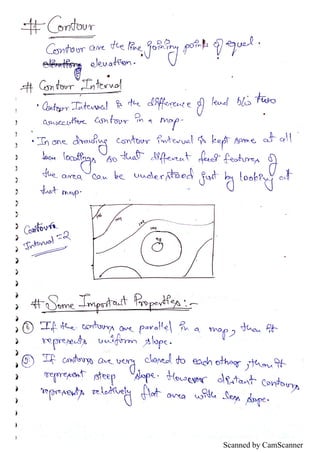 # Contour
Contour are the line joining points of equal
elevation.
# Contour Interval
• Contour Interval is the difference of level b/w two
consecutive contour in a map.
• In one drawing contour interval is kept same at all
locations so that different land features of
the area can be understood just by looking at
that map.
Contour
Interval = 2
# Some Important Properties :-
① If the contours are parallel in a map, then it
represents uniform slope.
② If contours are very closed to each other, then it
represent steep slope. However distant contours
represents relatively flat area with less slope.
Scanned by CamScanner